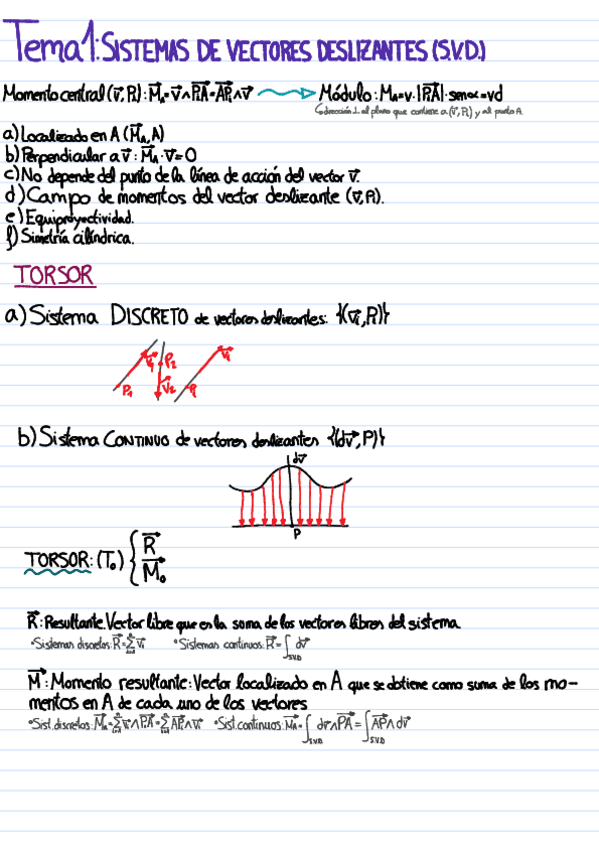 Tema 1: SISTEMAS DE VECTORES DESLIZANTES (S.V.D.)
Momento central (v⃗, P₁): M⃗ₐ = v⃗ ∧ P₁A⃗ = AP₁⃗ ∧ v⃗ → Módulo: Mₐ = v · |P₁A⃗| · senα = vd
↳ dirección ⊥ al plano que contiene a (v⃗, P₁) y al punto A.
a) Localizado en A (M⃗ₐ, A)
b) Perpendicular a v⃗: M⃗ₐ · v⃗ = 0
c) No depende del punto de la línea de acción del vector v⃗.
d) Campo de momentos del vector deslizante (v⃗, P₁).
e) Equiproyectividad.
f) Simetría cilíndrica.
TORSOR
a) Sistema DISCRETO de vectores deslizantes: {(v⃗ᵢ, Pᵢ)}
v⃗₁ P₂ v⃗ᵢ
P₁ v⃗₂ Pᵢ
b) Sistema CONTINUO de vectores deslizantes {(dv⃗, P)}
dv⃗
P
TORSOR: (T₀) { R⃗
M⃗₀
R⃗: Resultante. Vector libre que es la suma de los vectores libres del sistema
•Sistemas discretos: R⃗ = Σⁿᵢ₌₁ v⃗ᵢ •Sistemas continuos: R⃗ = ∫S.V.D dv⃗
M⃗: Momento resultante: Vector localizado en A que se obtiene como suma de los mo-
mentos en A de cada uno de los vectores
•Sist. discretos: M⃗ₐ = Σⁿᵢ₌₁ v⃗ᵢ ∧ PᵢA⃗ = Σⁿᵢ₌₁ APᵢ⃗ ∧ v⃗ᵢ •Sist. continuos: M⃗ₐ = ∫S.V.D dv⃗ ∧ PA⃗ = ∫S.V.D AP⃗ ∧ dv⃗